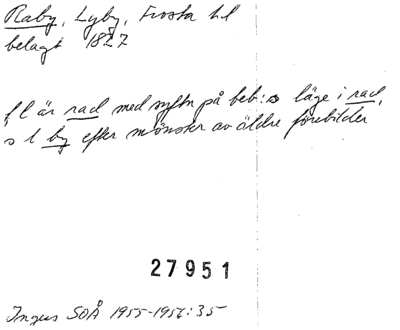 Raby, Lyby, Frosta hd
belagt 1827
f l är rad med syftn på beb:s läge i rad,
s l by efter mönster av äldre förebilder
27951
Ingers SOÅ 1955-1956:35